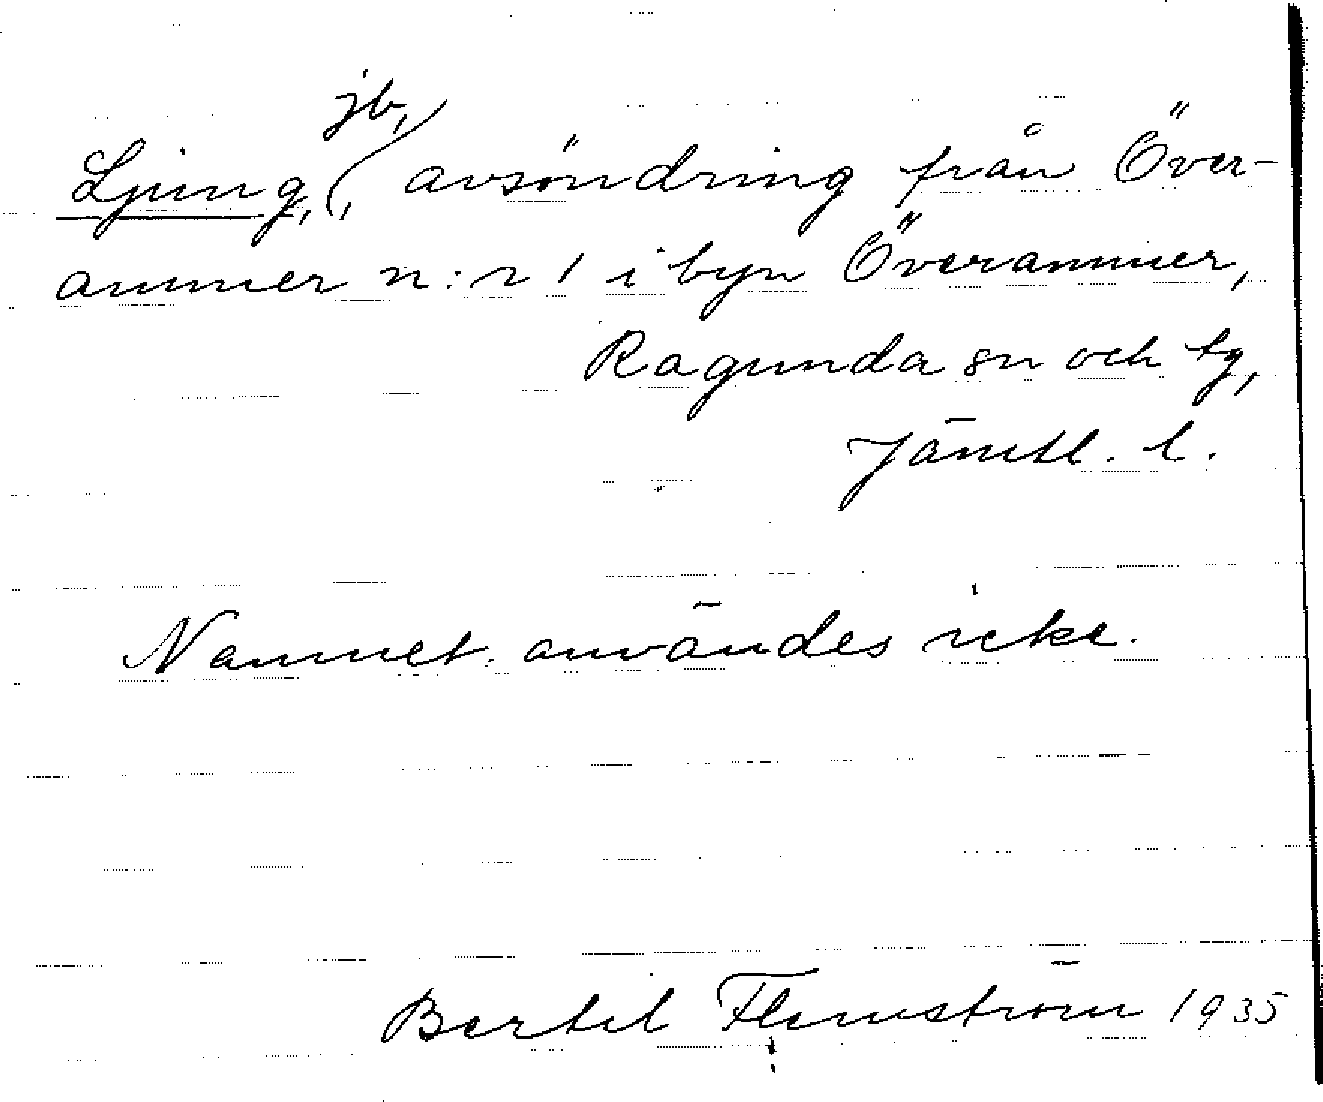 jb,
Ljung, avsöndring från Över-
ammer n:r 1 i byn Överammer,
Ragunda sn och tg,
Jämtl. l.
Namnet användes icke.
Bertil Flemström 1935